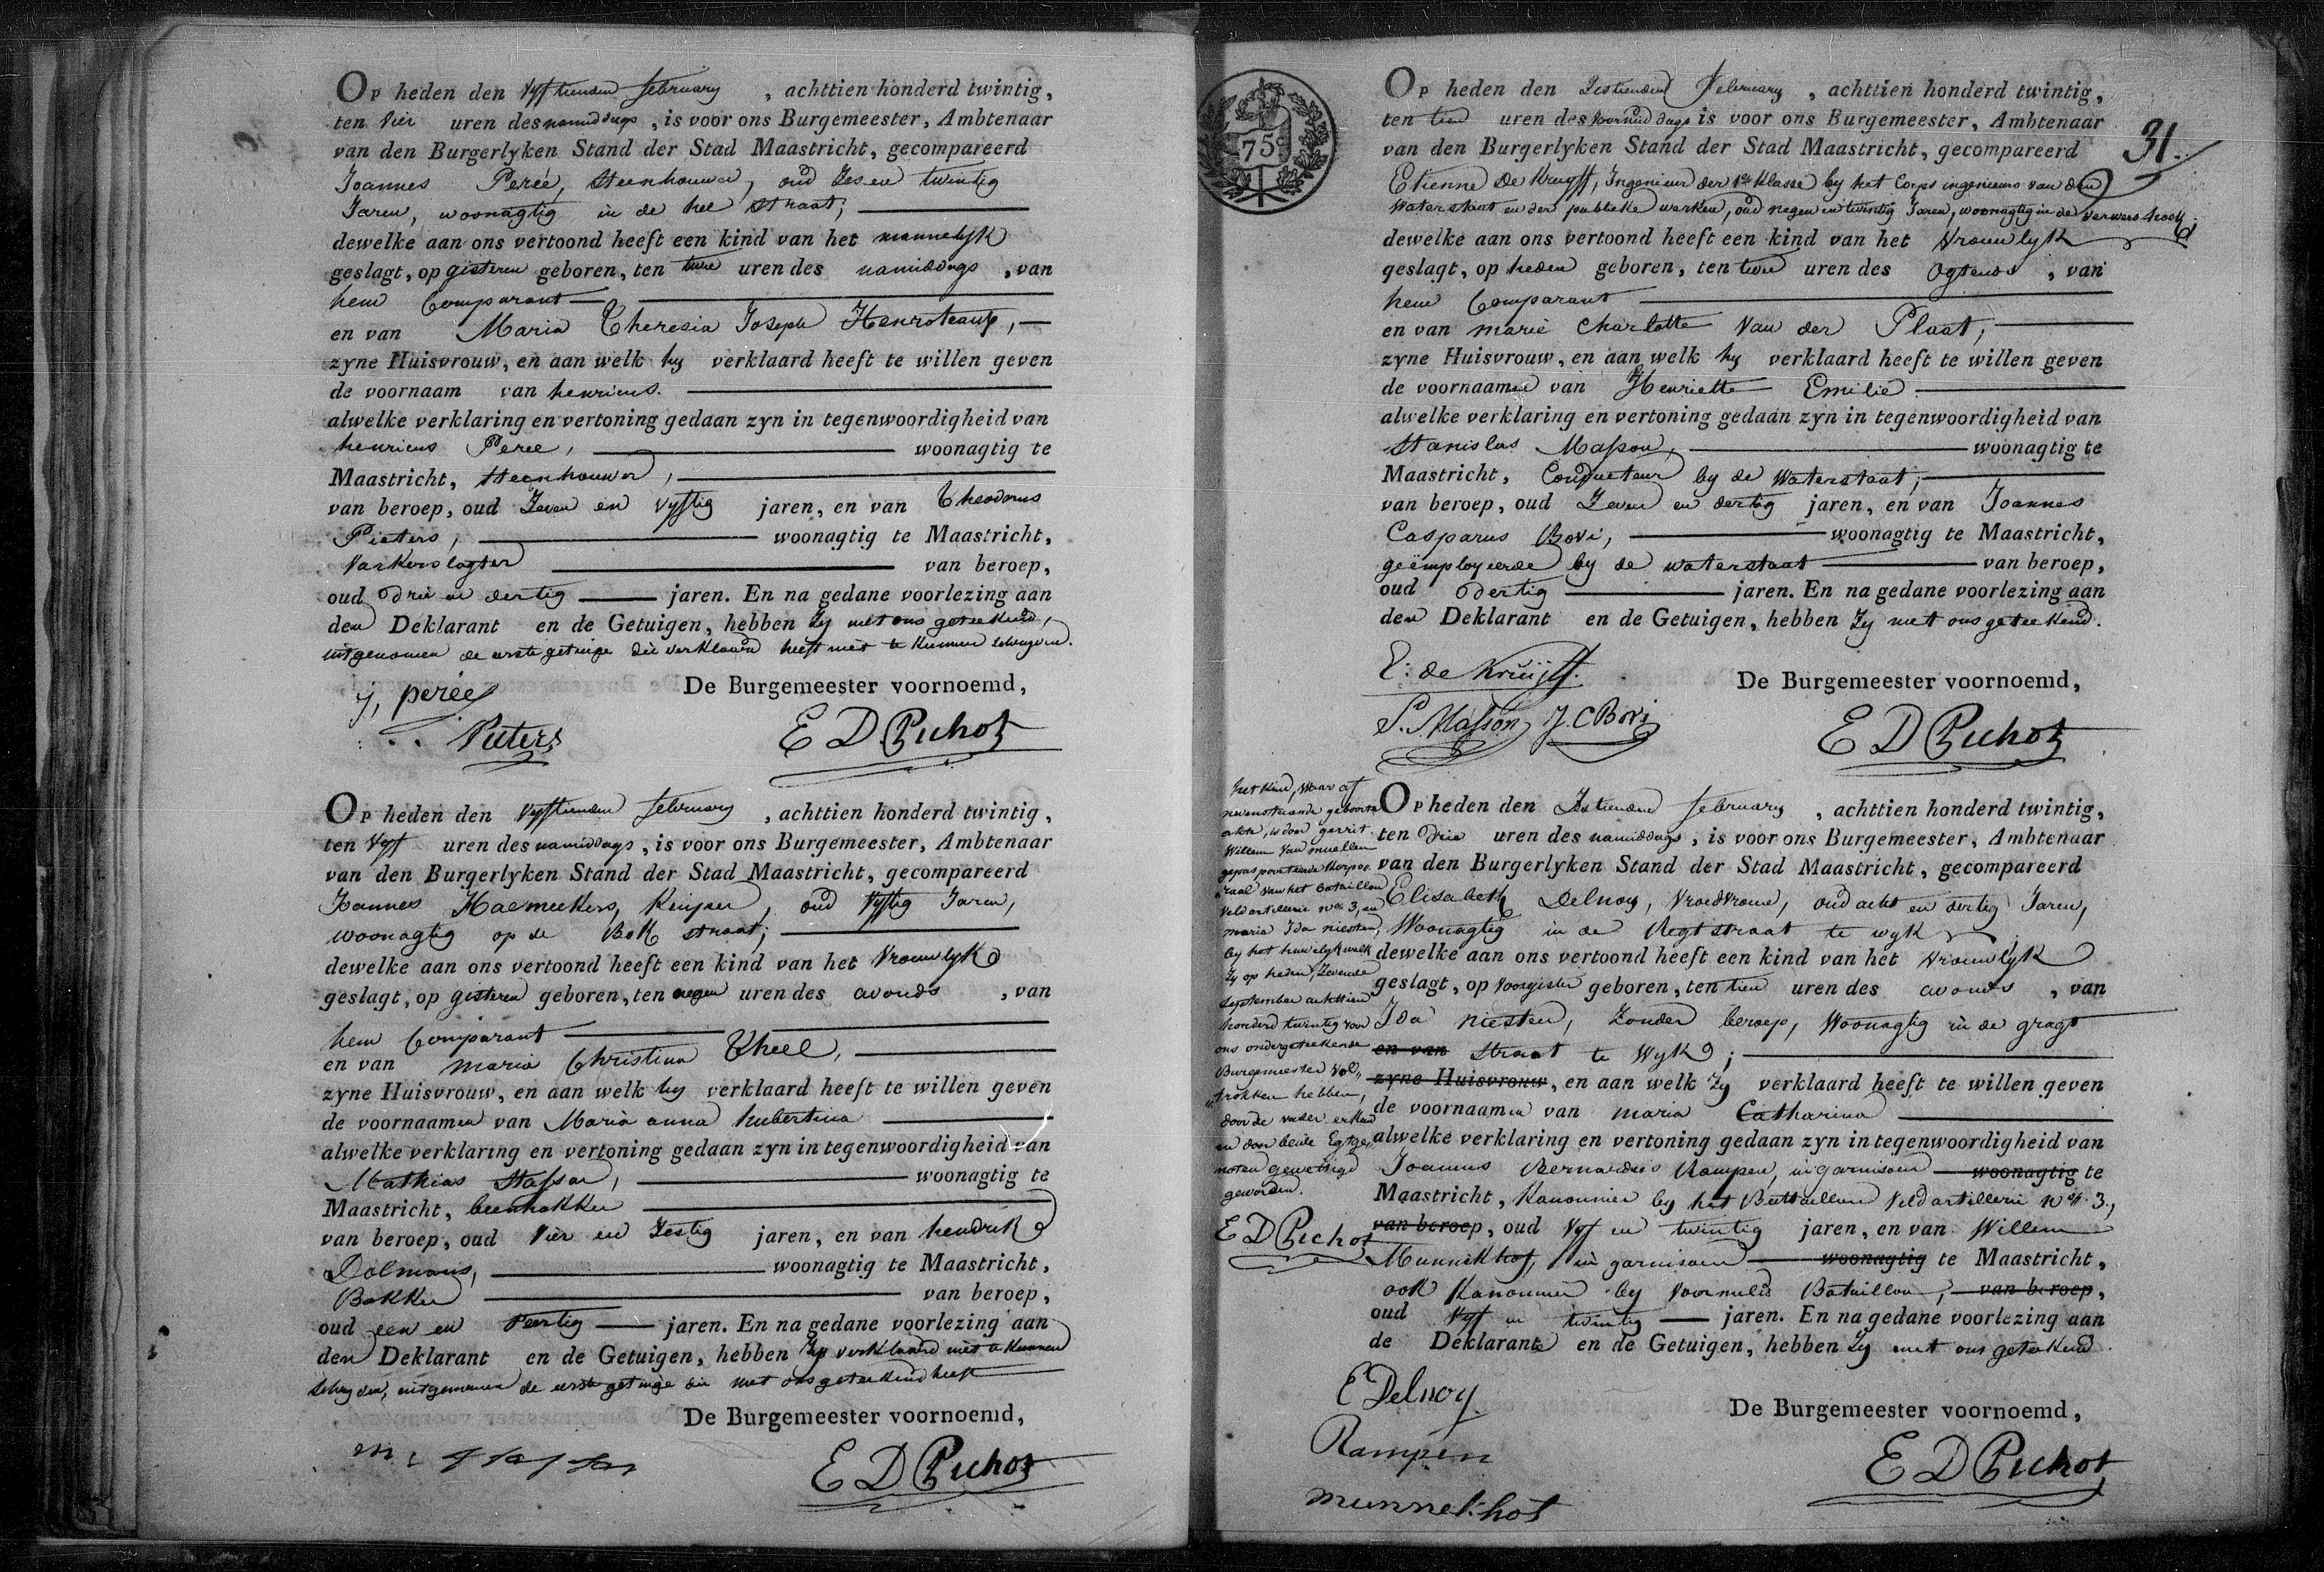 Op heden den vyftienden february , achttien honderd twintig,
ten vier uren des namiddags , is voor ons Burgemeester, Ambtenaar
van den Burgerlyken Stand der Stad Maastricht, gecompareerd
Joannes Perée, Steenhouwer, oud Zes en twintig
Jaren, woonagtig in de hel Straat;
dewelke aan ons vertoond heeft een kind van het mannelyk
geslagt, op gisteren geboren, ten twee uren des namiddags , van
hem Comparant
en van Maria Theresia Joseph Henroteaux,
zyne Huisvrouw, en aan welk hy verklaard heeft te willen geven
de voornaam van henricus.
alwelke verklaring en vertoning gedaan zyn in tegenwoordigheid van
henricus Peree, woonagtig te
Maastricht, Steenhouwer,
van beroep, oud Zeven en vyftig jaren, en van Theodorus
Pieters, woonagtig te Maastricht,
Varkerslagter van beroep,
oud drie en dertig jaren. En na gedane voorlezing aan
den Deklarant en de Getuigen, hebben Zy met ons geteekend,
uitgenomen de eerste getuige die verklaard heeft niet te kunnen schryven.
De Burgemeester voornoemd,
j, perée
Pieters
E D Pichot
Op heden den vyftienden february , achttien honderd twintig,
ten vyf uren des namiddags , is voor ons Burgemeester, Ambtenaar
van den Burgerlyken Stand der Stad Maastricht, gecompareerd
Joannes Haemeekers, Kuiper, oud vyftig Jaren,
woonagtig op de Bok straat;
dewelke aan ons vertoond heeft een kind van het vrouwlyk
geslagt, op gisteren geboren, ten negen uren des avonds , van
hem Comparant
en van maria Christina Theel,
zyne Huisvrouw, en aan welk hy verklaard heeft te willen geven
de voornaamen van Maria anna hubertina
alwelke verklaring en vertoning gedaan zyn in tegenwoordigheid van
Mathias Stassar, woonagtig te
Maastricht, beenhakker
van beroep, oud vier en Zestig jaren, en van hendrik
Dolmans, woonagtig te Maastricht,
Bakker van beroep,
oud een en veertig jaren. En na gedane voorlezing aan
den Deklarant en de Getuigen, hebben Zy verklaard niet te kunnen
schryven, uitgenomen de eerste getuige die met ons geteekend heeft
De Burgemeester voornoemd,
E D Pichot
75 c
31.
Op heden den Zestienden february , achttien honderd twintig,
ten tien uren des voormiddags is voor ons Burgemeester, Ambtenaar
van den Burgerlyken Stand der Stad Maastricht, gecompareerd
Etienne De Kruyff, Ingenieur der 1e Klasse by het Corps ingenieurs van den
Waterstaat en der publieke werken, oud negen en twintig Jaren, woonagtig in de verwers hoek;
dewelke aan ons vertoond heeft een kind van het vrouwlyk
geslagt, op heden geboren, ten twee uren des ogtends , van
hem Comparant
en van marie Charlotte Van der Plaat,
zyne Huisvrouw, en aan welk hy verklaard heeft te willen geven
de voornaamen van Henriette Emilie
alwelke verklaring en vertoning gedaan zyn in tegenwoordigheid van
Stanislas Masson, woonagtig te
Maastricht, Conducteur by de Waterstaat,
van beroep, oud Zeven en dertig jaren, en van Joannes
Casparus Bovi, woonagtig te Maastricht,
geëmployeerde by de waterstaat van beroep,
oud dertig jaren. En na gedane voorlezing aan
den Deklarant en de Getuigen, hebben Zy met ons geteekend.
E: de Kruijff.
De Burgemeester voornoemd,
S. Masson J. C Bovi
E D Pichot
het kind, waar af
nevenstaande geboorte
akte, is door gerrit
Willem van muellen
gepasporteerde korpo-
raal van het Bataillon
Veldartillerie No. 3, en
maria Ida niesten,
by het huwelyk welk
Zy op heden, Zevende
September achttien
honderd twintig voor
ons ondergeteekende
Burgemeester vol-
trokken hebben,
door de vader erkend
en door beide Egtge-
noten gewettigd
geworden.
E D Pichot
Op heden den Zestienden february , achttien honderd twintig,
ten drie uren des namiddags , is voor ons Burgemeester, Ambtenaar
van den Burgerlyken Stand der Stad Maastricht, gecompareerd
Elisabeth Delnoy, Vroedvrouw, oud acht en dertig Jaren,
Woonagtig in de Regtstraat te wyk
dewelke aan ons vertoond heeft een kind van het vrouwlyk
geslagt, op voorgister geboren, ten tien uren des avonds , van
Ida niesten, Zonder beroep, Woonagtig in de gragt
en van straat te Wyk;
zyne Huisvrouw, en aan welk Zy verklaard heeft te willen geven
de voornaamen van maria Catharina
alwelke verklaring en vertoning gedaan zyn in tegenwoordigheid van
Joannes Bernardus Rampen, in garnisoen woonagtig te
Maastricht, Kanonnier by het Battaillon Veldartillerie No. 3,
van beroep, oud vyf en twintig jaren, en van Willem
Munnikhof, in garnisoen woonagtig te Maastricht,
ook Kanonnier by voormeld Bataillon, van beroep,
oud vyf en twintig jaren. En na gedane voorlezing aan
de Deklarante en de Getuigen, hebben Zy met ons geteekend
E Delnoy
De Burgemeester voornoemd,
Rampen
E D Pichot
munnekhof